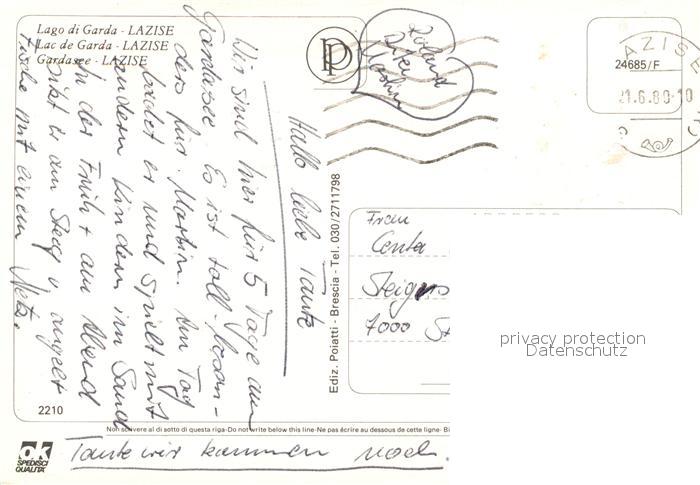 Lago di Garda - LAZISE
Lac de Garda - LAZISE
Gardasee - LAZISE
Hallo liebe Tante
Wir sind hier für 5 Tage am
Gardasee. Es ist toll. Beson-
ders für Martin. Am Tag
badet er und spielt mit
anderen Kindern im Sand
In der Früh + am Abend
sitzt er am Steg u. angelt
Fische mit einem Netz.
Tante wir kommen noch.
Roland
Martin
P
AZISE
24685/F
21.6.80-10
Ediz. Poiatti - Brescia - Tel. 030/2711798
Frau
Centa
7000 St
privacy protection
Datenschutz
2210
Non scrivere al di sotto di questa riga-Do not write below this line-Ne pas écrire au dessous de cette ligne- Bi
ok
SPEDISCI
QUALITA'